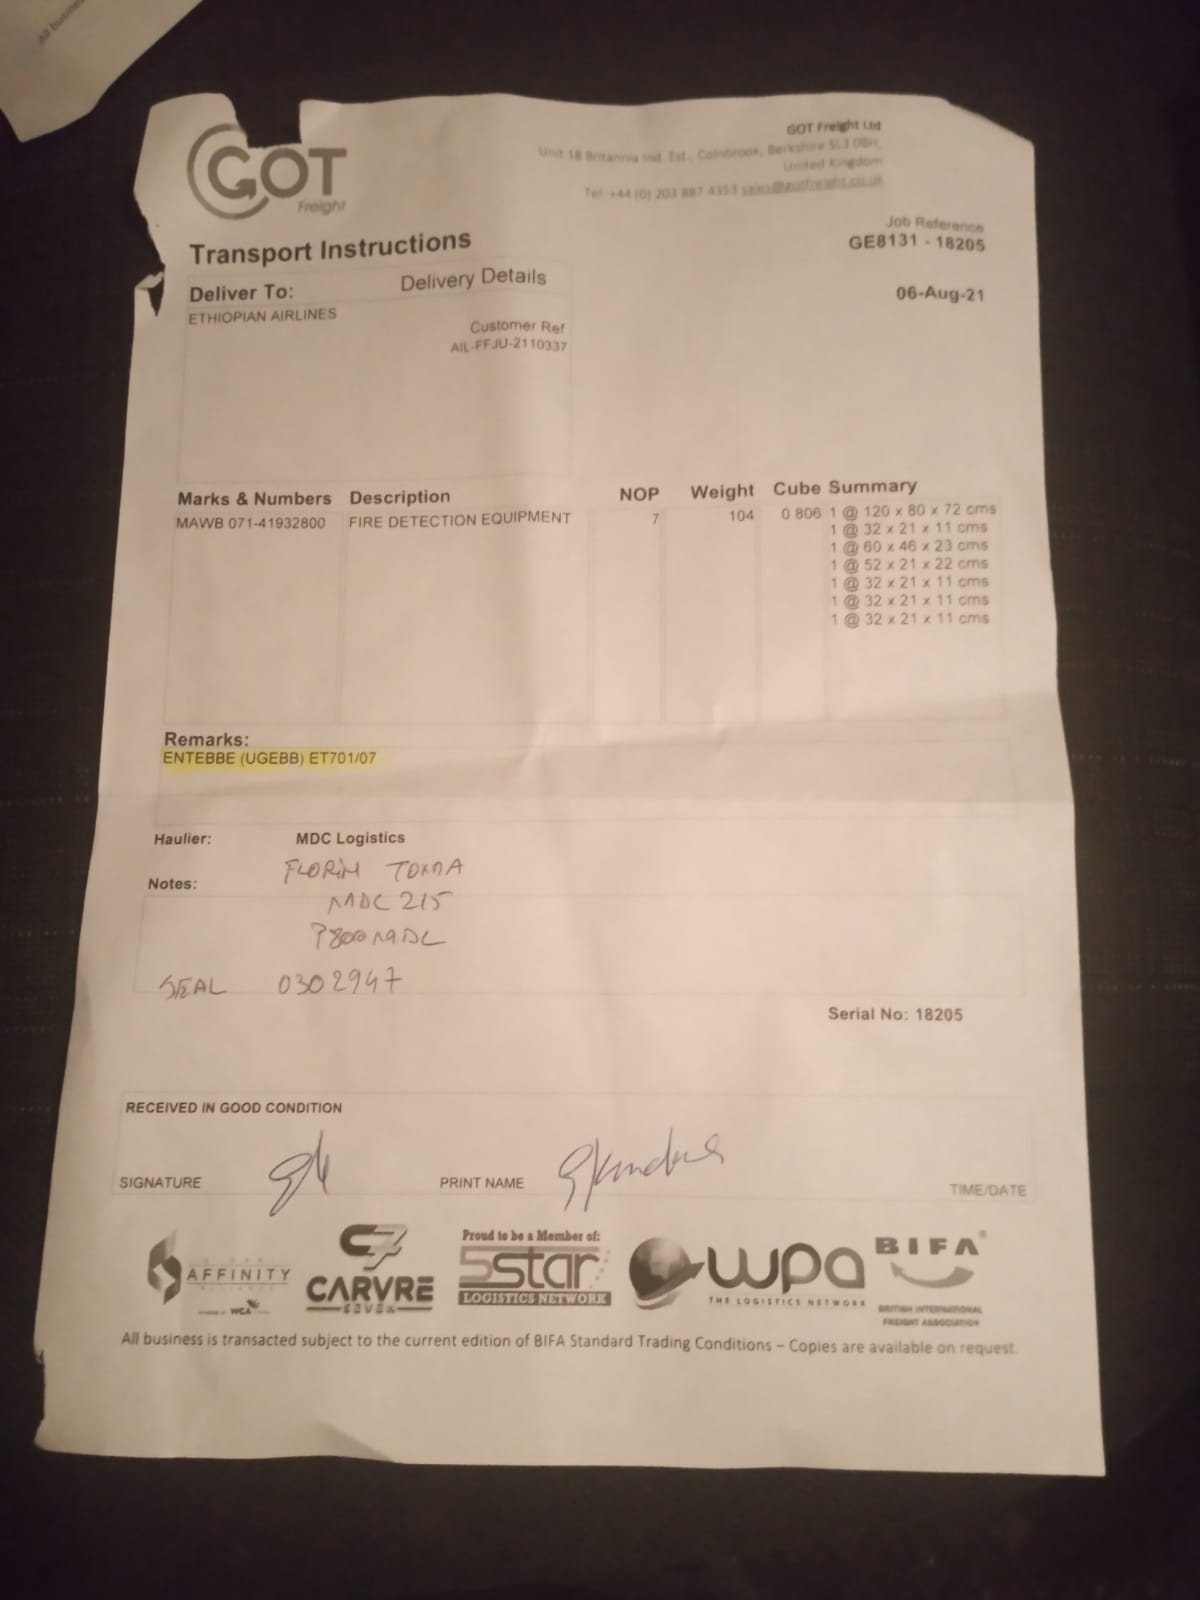 All busine
GOT
Freight
GOT Freight Ltd
Unit 18 Britannia Ind. Est., Colnbrook, Berkshire SL3 0BH,
United Kingdom
Tel: +44 (0) 203 887 4353 sales@gotfreight.co.uk
Transport Instructions
Job Reference
GE8131 - 18205
Deliver To:
Delivery Details
06-Aug-21
ETHIOPIAN AIRLINES
Customer Ref
AIL-FFJU-2110337
Marks & Numbers Description NOP Weight Cube Summary
MAWB 071-41932800 FIRE DETECTION EQUIPMENT 7 104 0.806 1 @ 120 x 80 x 72 cms
1 @ 32 x 21 x 11 cms
1 @ 60 x 46 x 23 cms
1 @ 52 x 21 x 22 cms
1 @ 32 x 21 x 11 cms
1 @ 32 x 21 x 11 cms
1 @ 32 x 21 x 11 cms
Remarks:
ENTEBBE (UGEBB) ET701/07
Haulier: MDC Logistics
FLORIN TOMA
Notes:
MDC 215
SEAL 0302947
Serial No: 18205
RECEIVED IN GOOD CONDITION
SIGNATURE PRINT NAME TIME/DATE
AFFINITY
WCA
C7
CARVRE
SEVEN
Proud to be a Member of:
5star
LOGISTICS NETWORK
wpa
THE LOGISTICS NETWORK
BIFA
BRITISH INTERNATIONAL
FREIGHT ASSOCIATION
All business is transacted subject to the current edition of BIFA Standard Trading Conditions – Copies are available on request.